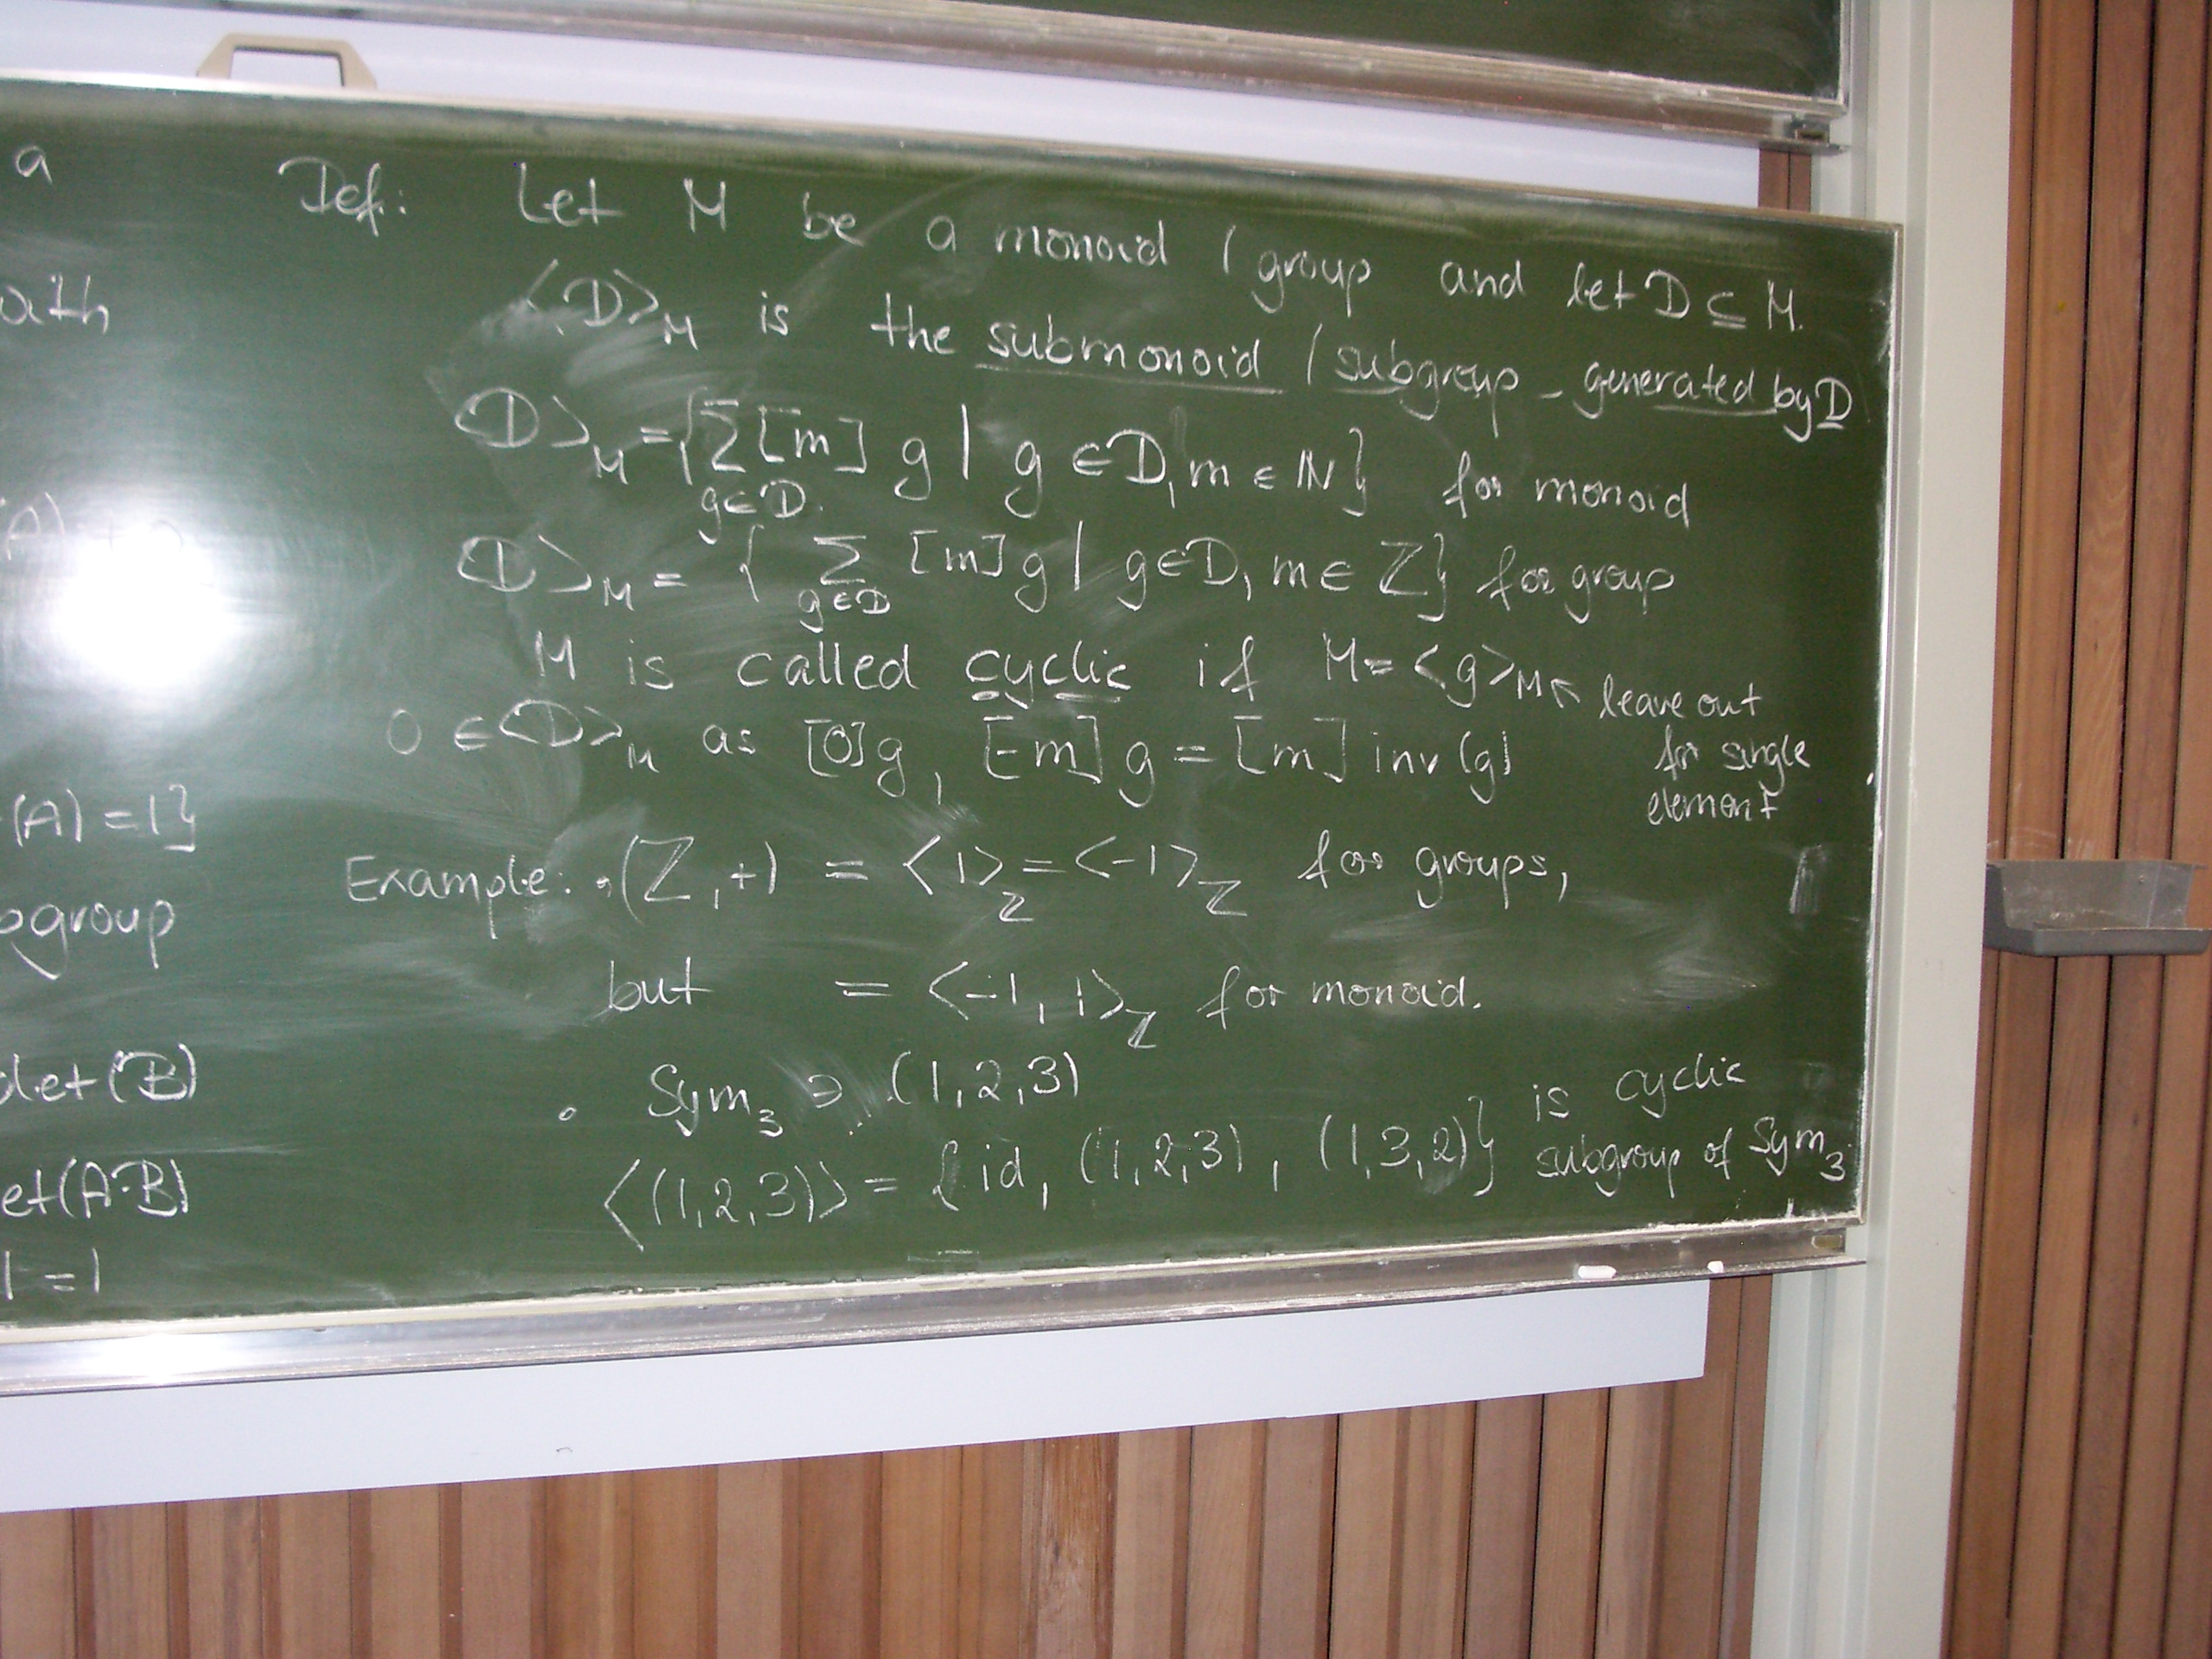 a
ath
(A)
(A) = 1}
group
det(B)
et(A·B)
1 = 1
Def.: Let M be a monoid / group and let D ⊆ M.
<D>_M is the submonoid / subgroup generated by D
<D>_M = {Σ_{g∈D} [m] g | g ∈ D, m ∈ ℕ} for monoid
<D>_M = { Σ_{g∈D} [m] g | g∈D, m ∈ ℤ} for group
M is called cyclic if M = <g>_M ↖ leave out
for single
element
0 ∈ <D>_M as [0]g, [-m] g = [m] inv(g)
Example: • (ℤ, +) = <1>_ℤ = <-1>_ℤ for groups,
but = <-1, 1>_ℤ for monoid.
• Sym_3 ∋ (1,2,3)
<(1,2,3)> = {id, (1,2,3), (1,3,2)} is cyclic
subgroup of Sym_3